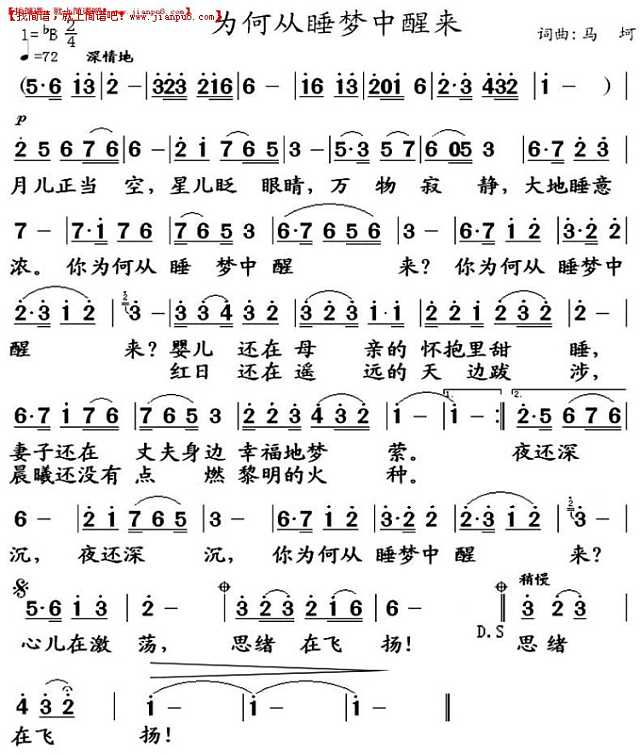 【找简谱，就上简谱吧！www.jianpu8.com】
为何从睡梦中醒来
1=ᵇB 2/4
♩=72 深情地
词曲：马 坷
(5·6 1 3 | 2 － | 323 216 | 6 － | 16 13 | 201 6 | 2·3 432 | 1 － )
p
2 5 6 7 6 | 6 － | 2 1 7 6 5 | 3 － | 5·3 5 7 | 6 05 3 | 5·6·7 2 3
月儿正当 空，星儿眨 眼睛，万 物 寂 静，大地睡意
7 － | 7·1 7 6 | 7 6 5 3 | 6·7 6 5 6 | 3 － | 6·7 1 2 | 3·2 2
浓。你为何从 睡 梦中 醒 来？你为何从 睡梦中
2·3 1 2 | 3 － | 3 3 4 3 2 | 3 2 3 1·1 | 2 2 1 2 3 2 | 2 －
醒 来？婴儿 还在 母 亲的 怀抱里甜 睡，
红日 还在 遥 远的 天 边跋 涉，
6·7 1 7 6 | 7 6 5 3 | 2 2 3 4 3 2 | 1 － | 1. 1 － :| 2. 2·5 6 7 6
妻子还在 丈夫身边 幸福地梦 萦。 夜还深
晨曦还没有 点 燃 黎明的火 种。
6 － | 2 1 7 6 5 | 3 － | 6·7 1 2 | 3·2 2 | 2·3 1 2 | 3 －
沉，夜还深 沉，你为何从 睡梦中 醒 来？
5·6 1 3 | 2 － | 3 2 3 2 1 6 | 1 － ‖ 稍慢 3 2 3
心儿在激 荡，思绪 在飞 扬！ D.S 思绪
4 3 2 | 1 － | 1 － | 1 － ‖
在飞 扬！